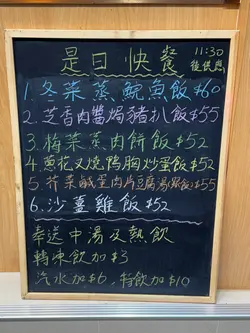 是日快餐
11:30
後供應
1.冬菜蒸鯇魚飯$60
2.芝香肉醬焗豬扒飯$55
3.梅菜蒸肉餅飯$52
4.蔥花叉燒鴨胸炒蛋飯$52
5.芥菜鹹蛋肉片豆腐湯飯$55
6.沙薑雞飯$52
奉送中湯及熱飲
轉凍飲加$3
汽水加$6,特飲加$10